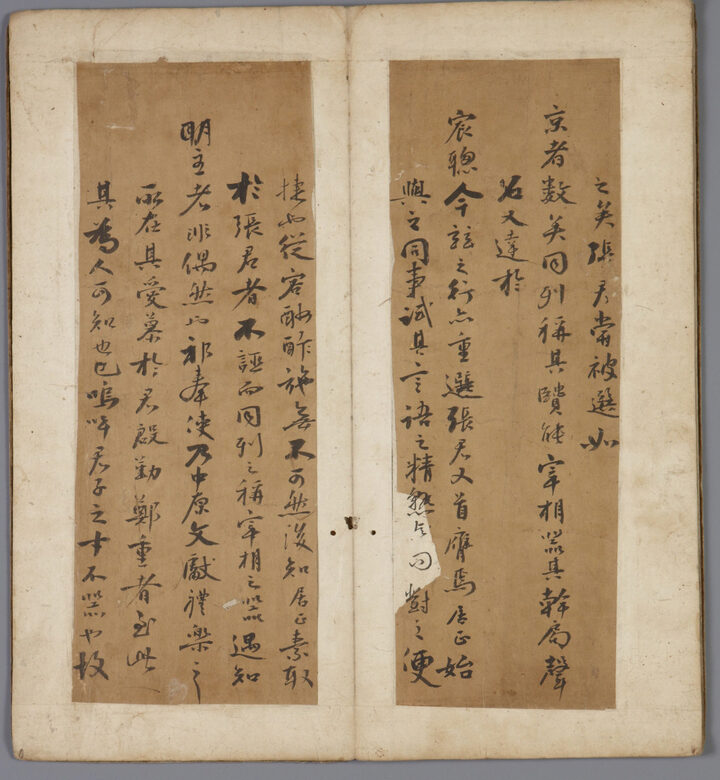 之美張君嘗被選如
京者数矣同列稱其能宰相器其幹局聲
名又達於
宸聰今茲之行亦重選張君又首膺焉居正始
與之同事試其言語之精熟問對之便
捷也從容酬酢施無不可然後知居正素取
於張君者不誣而同列之稱宰相之器遇知
明主者非偶然也祁奉使乃中原文獻禮樂之
所在其愛慕於君殷勤鄭重者至此
其為人可知也已嗚呼君子之才不器也故